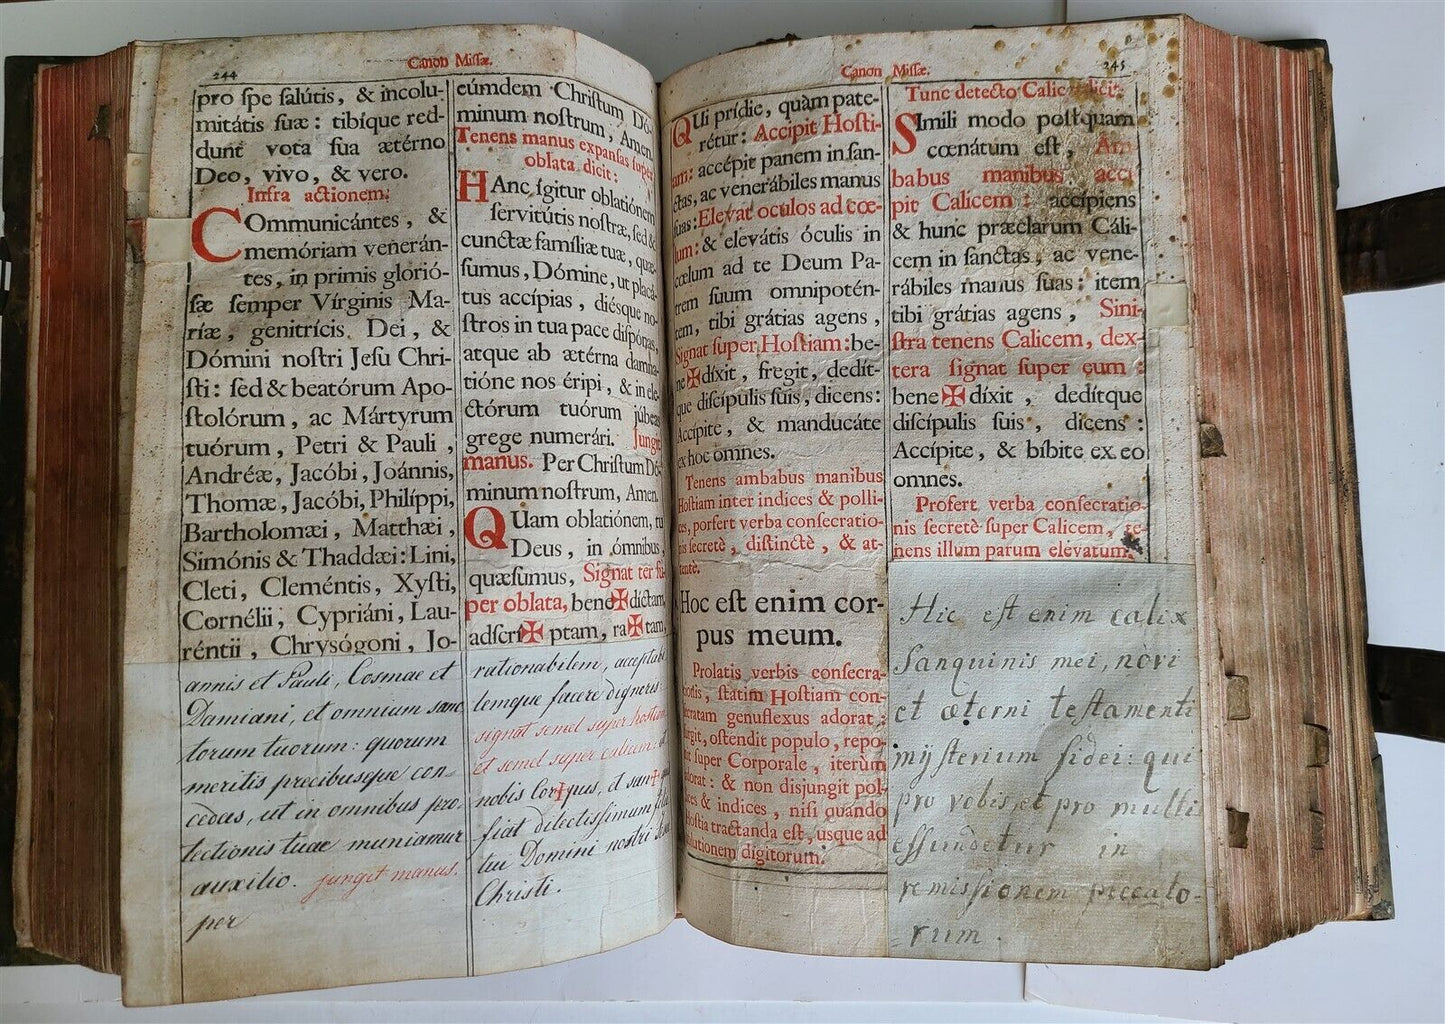 244
Canon Missæ.
pro spe salútis, & incolu-
mitátis suæ: tibíque red-
dunt vota sua ætérno
Deo, vivo, & vero.
Infra actionem:
COmmunicántes, &
memóriam venerán-
tes, in primis glorió-
sæ semper Vírginis Ma-
ríæ, genitrícis Dei, &
Dómini nostri Jesu Chri-
sti: sed & beatórum Apo-
stolórum, ac Mártyrum
tuórum, Petri & Pauli,
Andréæ, Jacóbi, Joánnis,
Thomæ, Jacóbi, Philíppi,
Bartholomæi, Matthæi,
Simónis & Thaddæi: Lini,
Cleti, Cleméntis, Xysti,
Cornélii, Cypriáni, Lau-
réntii, Chrysógoni, Jo-
annis et Pauli, Cosmae et
Damiani, et omnium sanc
torum tuorum: quorum
meritis precibusque con-
cedas, ut in omnibus pro
tectionis tuae muniamur
auxilio. jungit manus.
per
eúmdem Christum Dó-
minum nostrum, Amen.
Tenens manus expansas super
oblata dicit:
HAnc ígitur oblatiónem
servitútis nostræ, sed &
cunctæ famíliæ tuæ, quæ-
sumus, Dómine, ut placá-
tus accípias, diésque no-
stros in tua pace dispónas,
atque ab ætérna damna-
tióne nos éripi, & in ele-
ctórum tuórum júbeas
grege numerári. Jungit
manus. Per Christum Dó-
minum nostrum, Amen.
QUam oblatiónem, tu
Deus, in ómnibus,
quæsumus, Signat ter su-
per oblata, bene✠díctam,
adscri✠ptam, ra✠tam,
rationabilem, acceptabi
lemque facere digneris:
signat semel super hostiam
et semel super calicem: ut
nobis cor+pus, et san+
fiat dilectissimum
tui Domini nostri
Christi.
Canon Missæ.
245
QUi prídie, quàm pate-
rétur: Accipit Hosti-
am: accépit panem in san-
ctas, ac venerábiles manus
suas: Elevat oculos ad cœ-
lum: & elevátis óculis in
cœlum ad te Deum Pa-
trem suum omnipotén-
tem, tibi grátias agens,
Signat super Hostiam: be-
ne✠díxit, fregit, dedít-
que discípulis suis, dicens:
Accípite, & manducáte
ex hoc omnes.
Tenens ambabus manibus
Hostiam inter indices & polli-
ces, porfert verba consecratio-
nis secretè, distinctè, & at-
tentè.
Hoc est enim cor-
pus meum.
Prolatis verbis consecra-
tionis, statim Hostiam con-
secratam genuflexus adorat:
surgit, ostendit populo, repo-
nit super Corporale, iterùm
adorat: & non disjungit pol-
lices & indices, nisi quando
Hostia tractanda est, usque ad
ablutionem digitorum.
Tunc detecto Calice dicit:
SImili modo postquam
cœnátum est, Am
babus manibus acci
pit Calicem: accípiens
& hunc præclarum Cáli-
cem in sanctas, ac vene-
rábiles manus suas: item
tibi grátias agens, Sini-
stra tenens Calicem, dex-
tera signat super eum:
bene✠díxit, dedítque
discípulis suis, dicens:
Accípite, & bíbite ex eo
omnes.
Profert verba consecratio-
nis secretè super Calicem, te-
nens illum parum elevatum.
Hic est enim calix
Sanguinis mei, nòvi
et æterni testamenti
mijsterium fidei: qui
pro vobis, et pro multi
effundetur in
remissionem peccato-
rum.